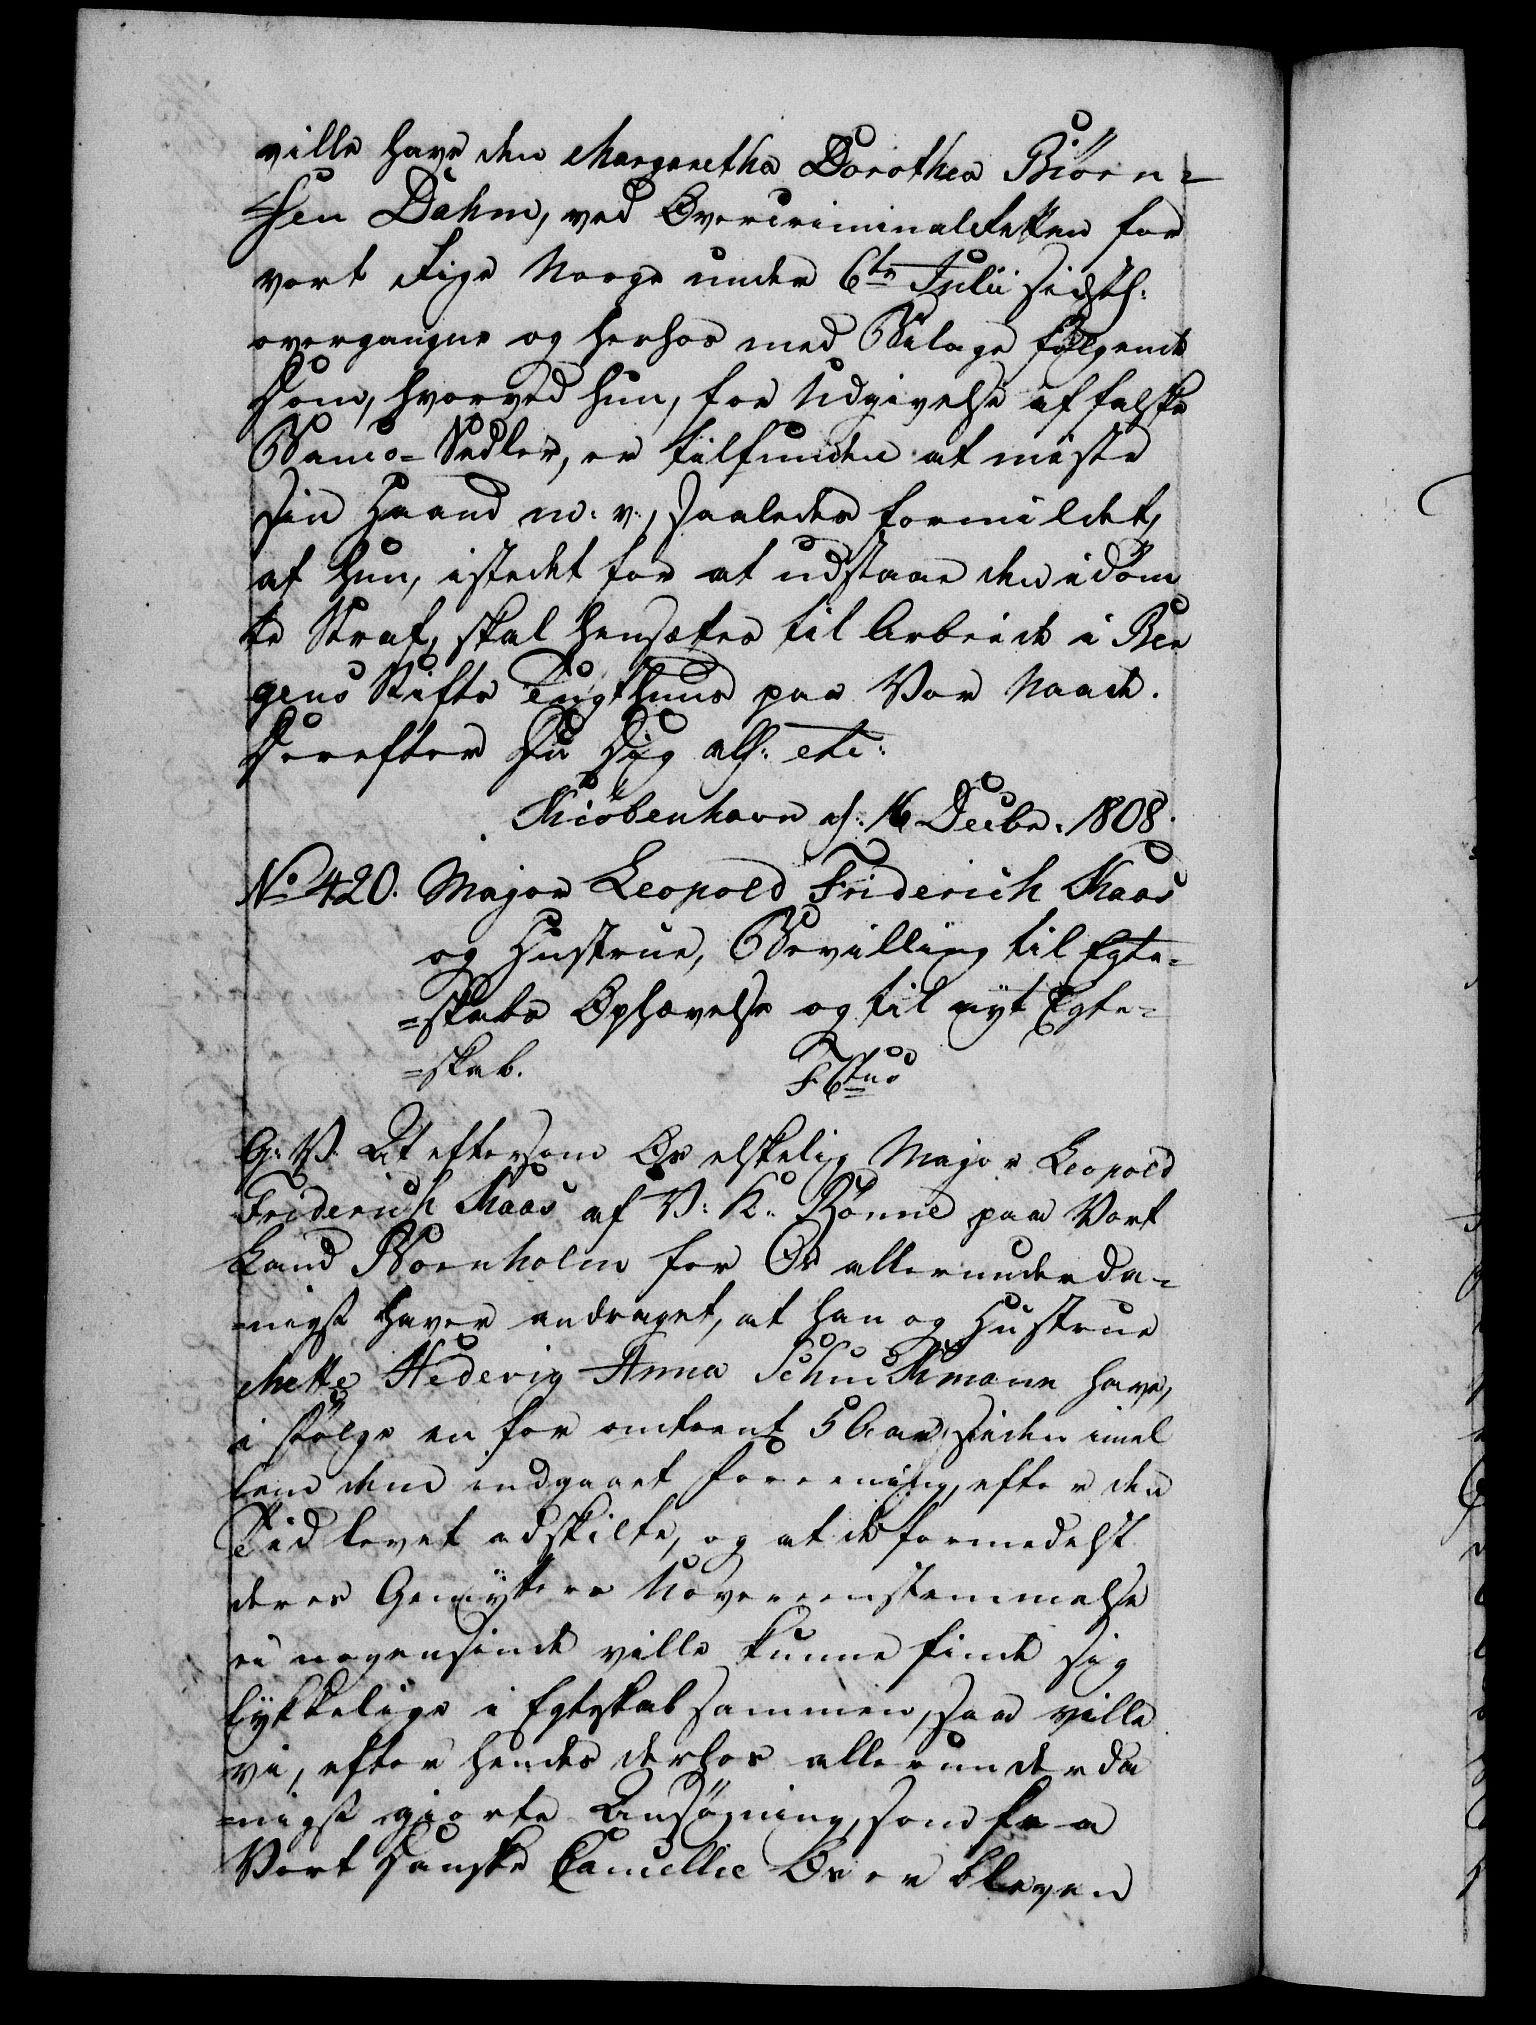 ville have den Margaretha Dorothea Biørn-
sen Dahm, ved Overcriminalretten for
vort Rige Norge under 6te Julii sidstl:
overgangne og herhos med Bilage følgende
Dom, hvorved hun, for Udgivelse af falske
Banco-Sedler, er tilfunden at miste
sin Haand m: v:, saaledes formildet,
at hun, istedet for at udstaae den idøm
te Straf, skal hensættes til Arbeide i Ber
gens Stifts Tugthuus paa Vor Naade.
Derefter Du Dig all: etc:
Kiøbenhavn d: 16 Decbr: 1808.
No 420. Major Leopold Friderich Kaas
og Hustrue, Bevilling til Egte-
-skabs Ophævelse og til nyt Egte-
-skab. F: 6tus
G: V: At eftersom Os elskelig Major Leopold
Friderich Kaas af V: K: Rønne paa Vort
Land Bornholm for Os allerunderda-
-nigst haver andraget, at han og Hustrue
Mette Hedevig Anna Schu Kmann have,
i følge en for omtrent 5 Aar siden imel
lem dem indgaaet Foreening, efter den
Tid levet adskilte, og at de formedelst
deres Gemytters Uovereensstemmelse
ei nogensinde ville kunne finde sig
lykkelige i Egteskab sammen, saa ville
vi, efter hendes derhos allerunderda
-nigst giorte Ansøgning, som fra
Vort Danske Cancellie Os er bleven